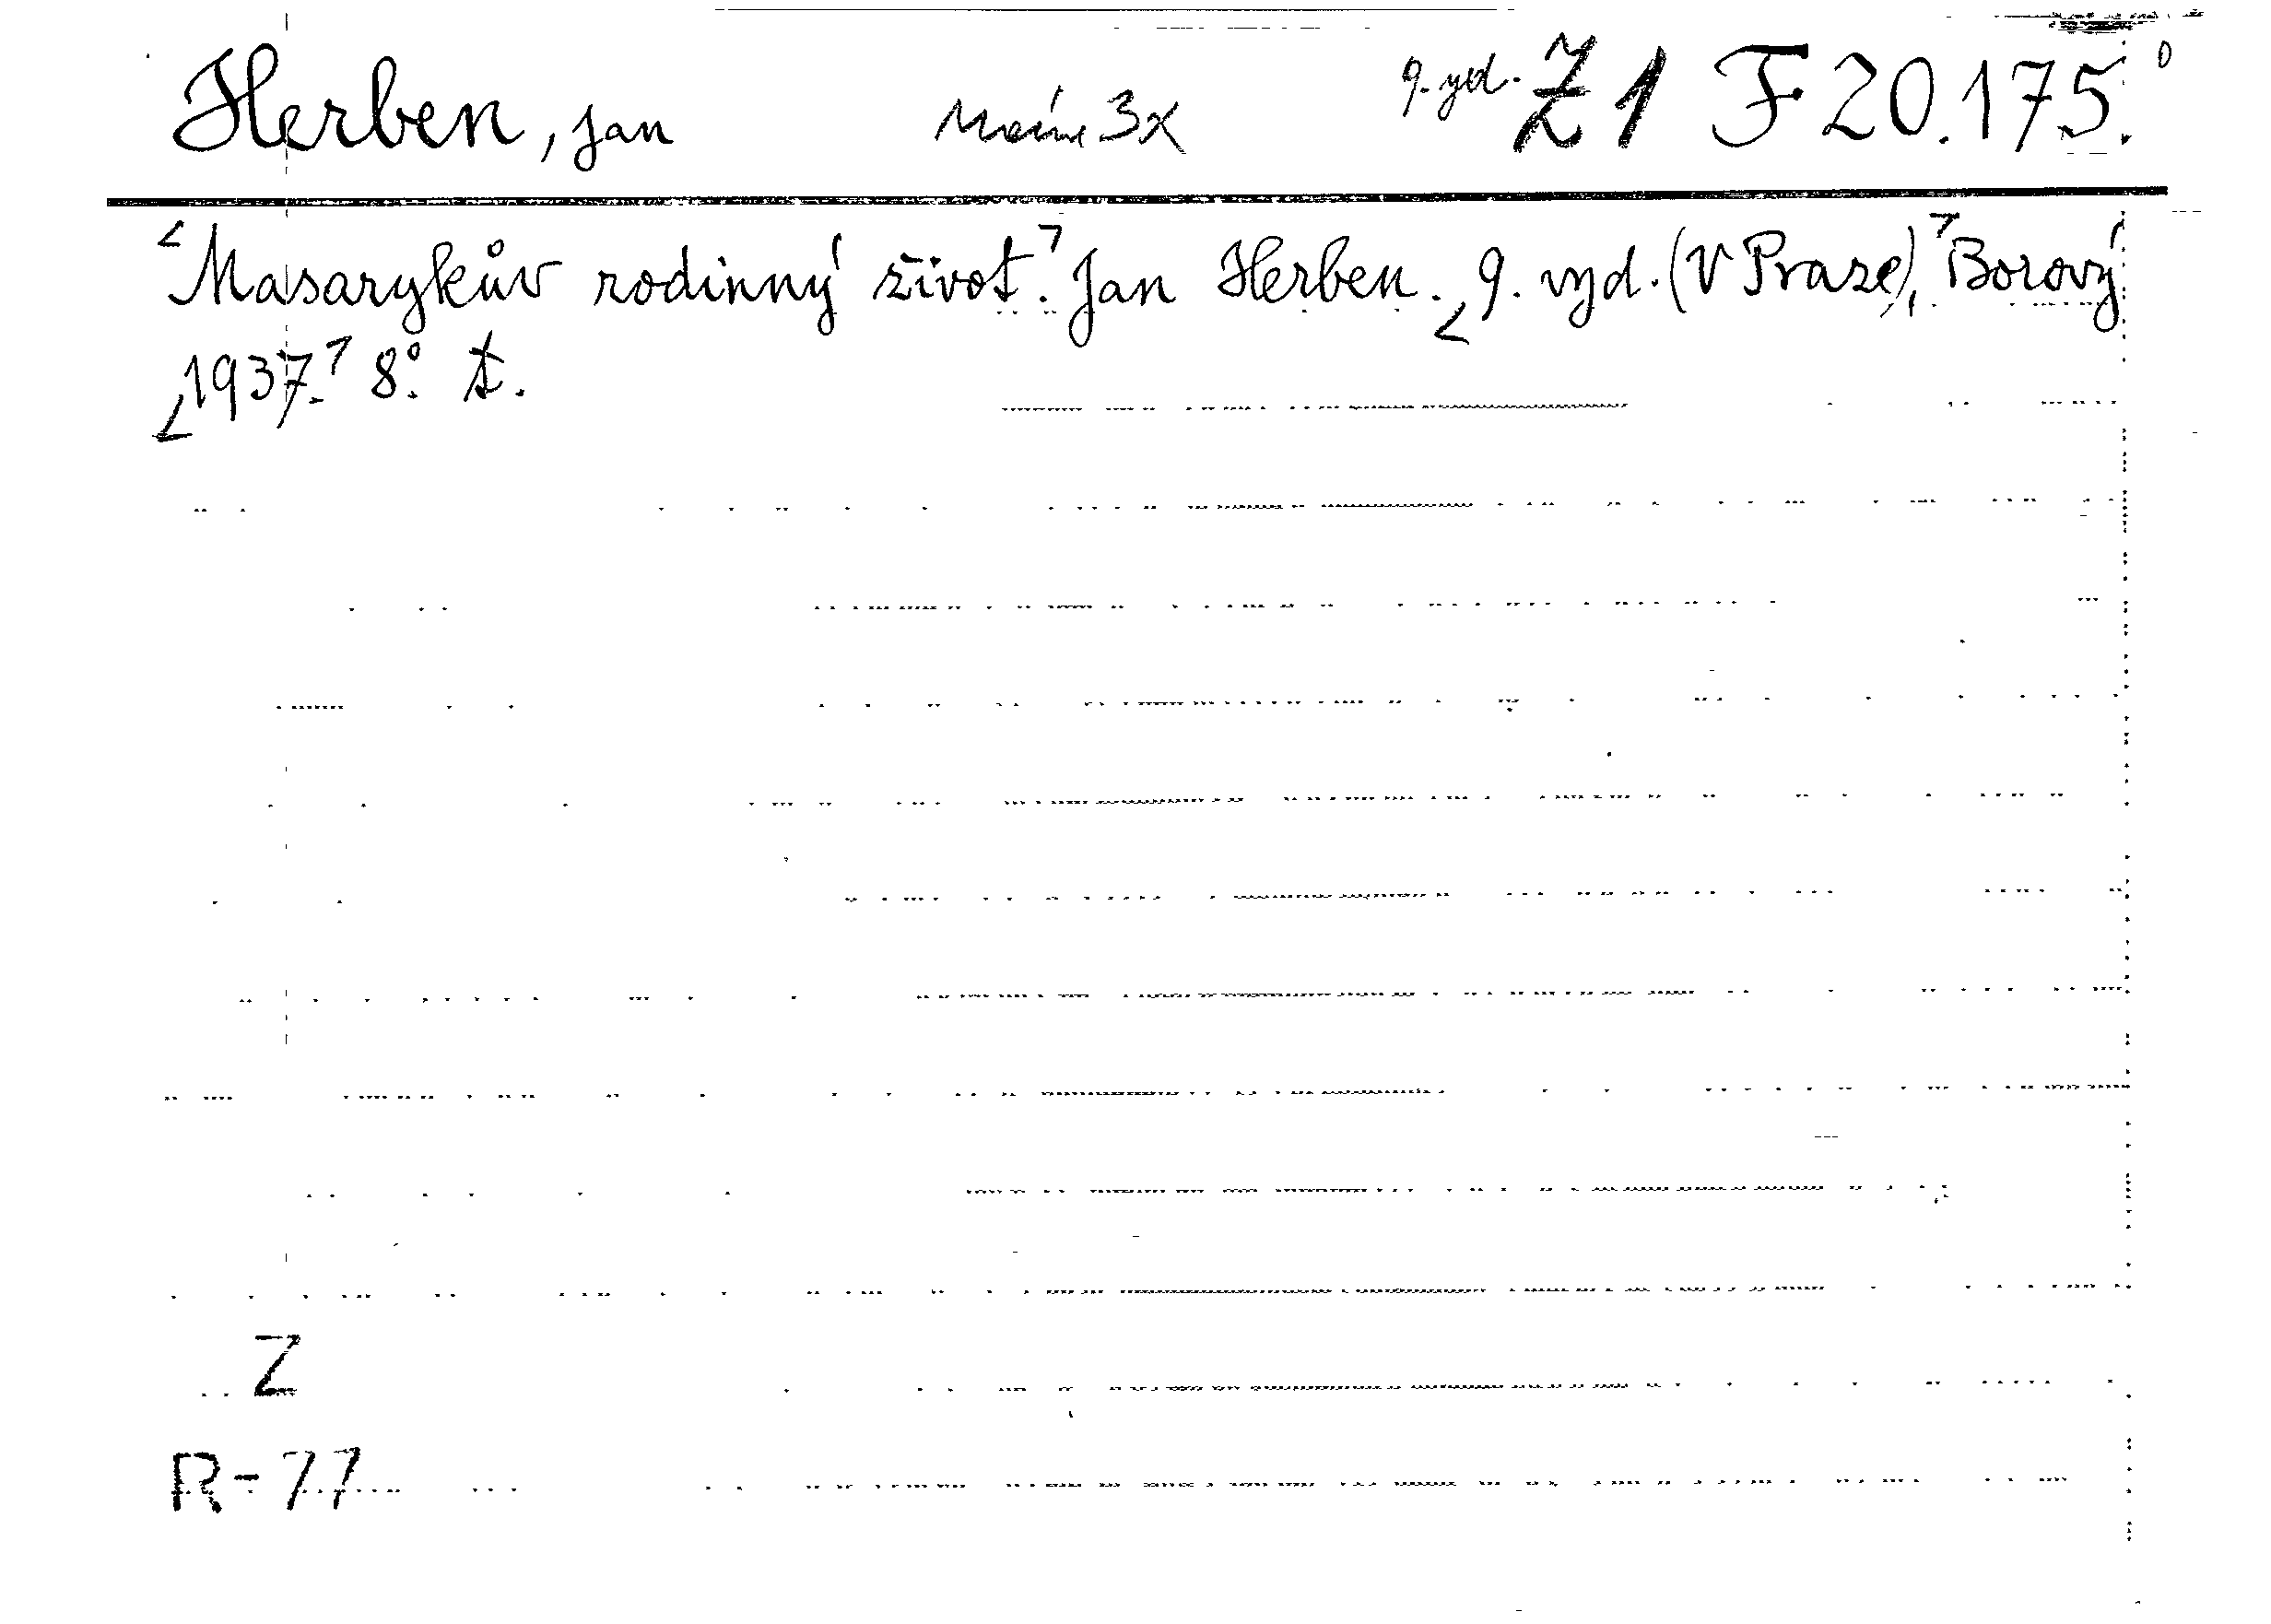 Herben, Jan 3x 9. vyd. Z1 F 20.175.
Masarykův rodinný život. Jan Herben. 9. vyd. (V Praze), Borový
1937. 8°.
Z
R-77